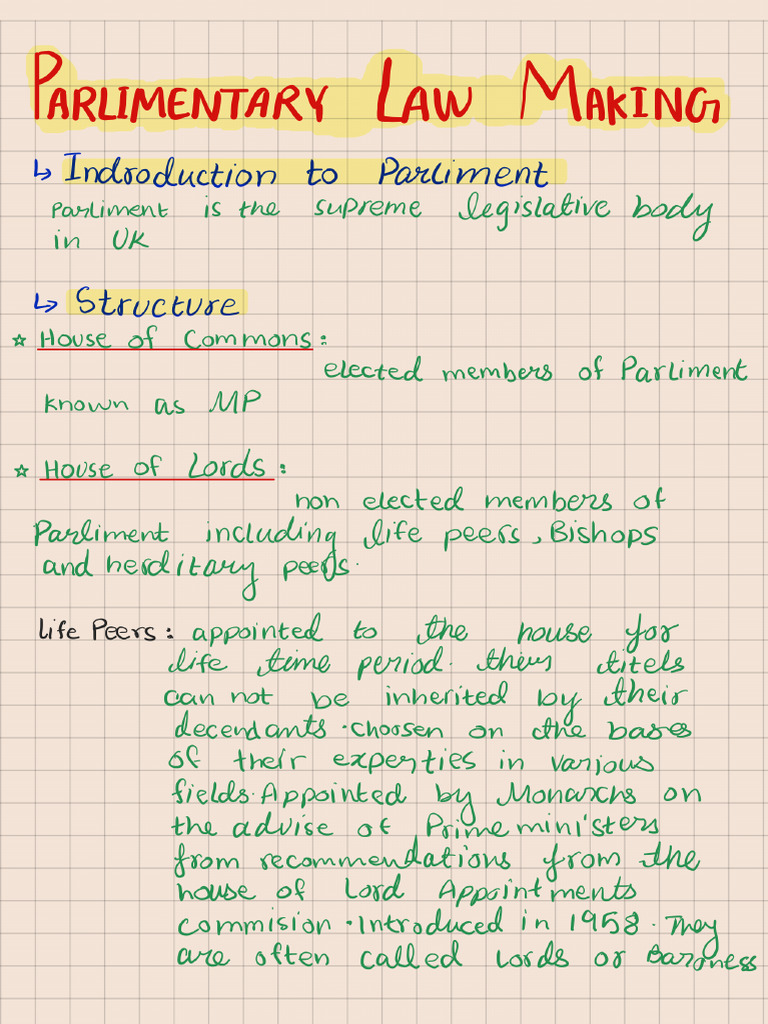 PARLIMENTARY LAW MAKING
↳ Indroduction to Parliment
Parliment is the supreme legislative body
in UK
↳ Structure
☆ House of Commons:
elected members of Parliment
known as MP
☆ House of Lords:
non elected members of
Parliment including life peers, Bishops
and herditary peers.
Life Peers: appointed to the house for
life time period. theirs titels
can not be inherited by their
decendants. choosen on the bases
of their experties in various
fields. Appointed by Monarchs on
the advise of Prime ministers
from recommendations from the
house of Lord Appointments
commision. Introduced in 1958. They
are often called Lords or Baroness